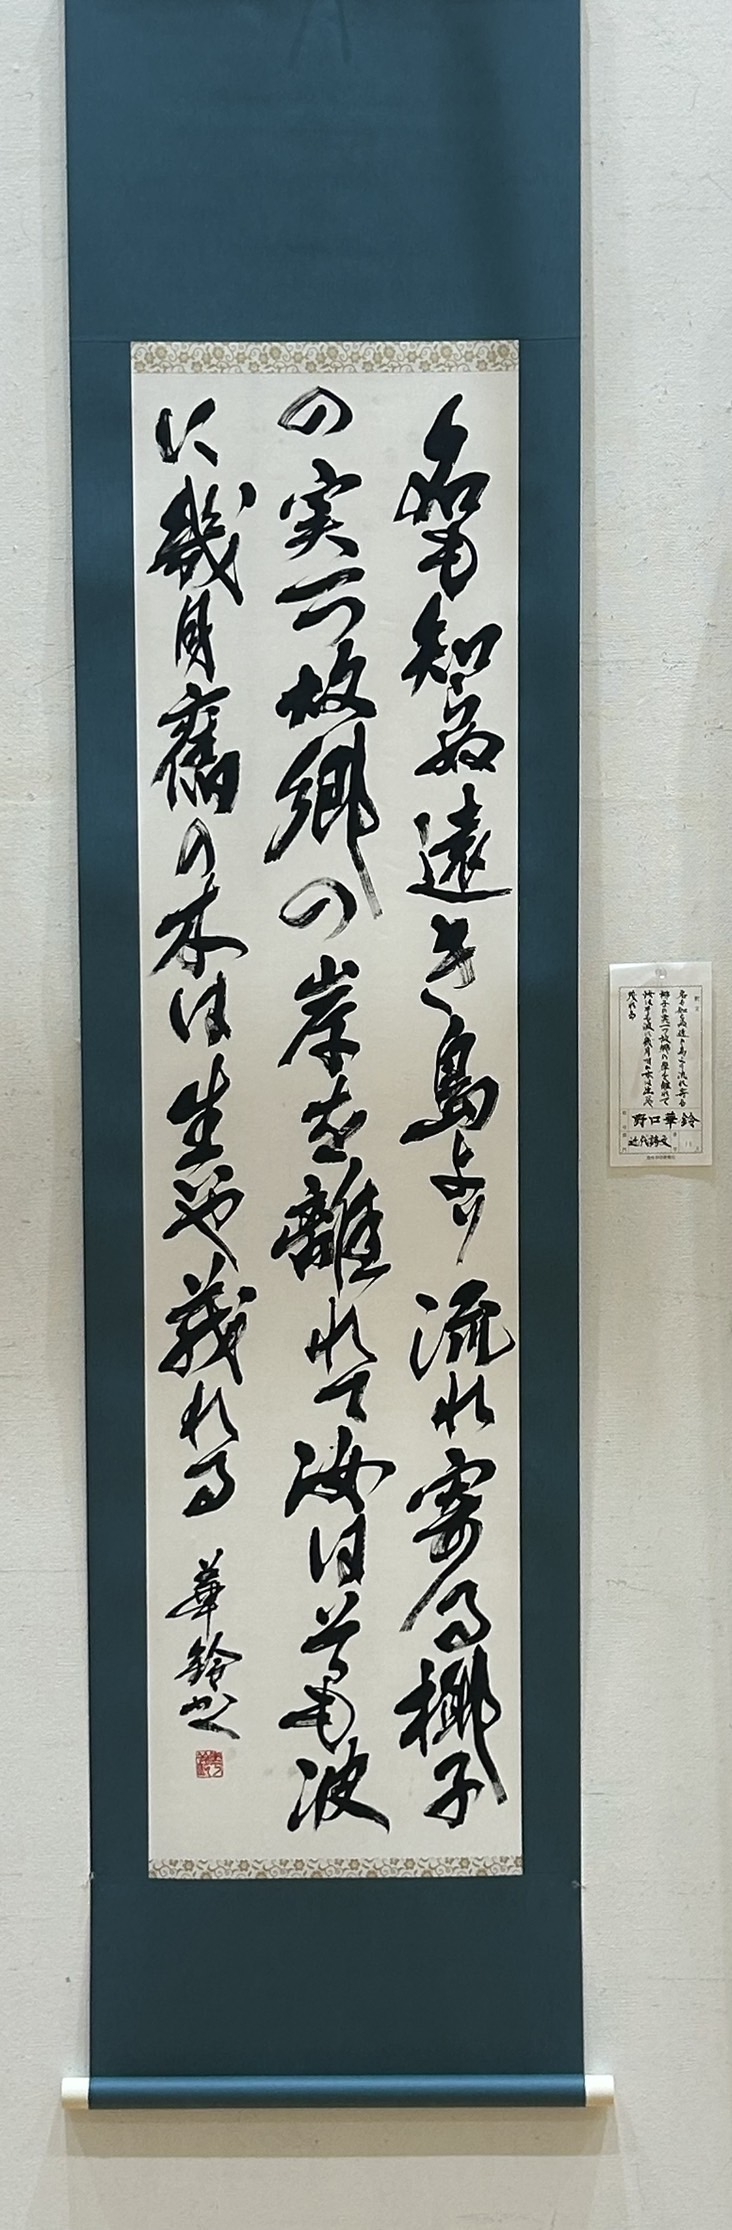 名も知らぬ遠き島より流れ寄る椰子
の実一つ故郷の岸を離れて汝はそも波
に幾月舊の木は生や茂れる
華鈴書
釈文
名も知らぬ遠き島より流れ寄る
椰子の実一つ故郷の岸を離れて
汝はそも波に幾月旧の木は生や
茂れる
野口華鈴
近代詩文